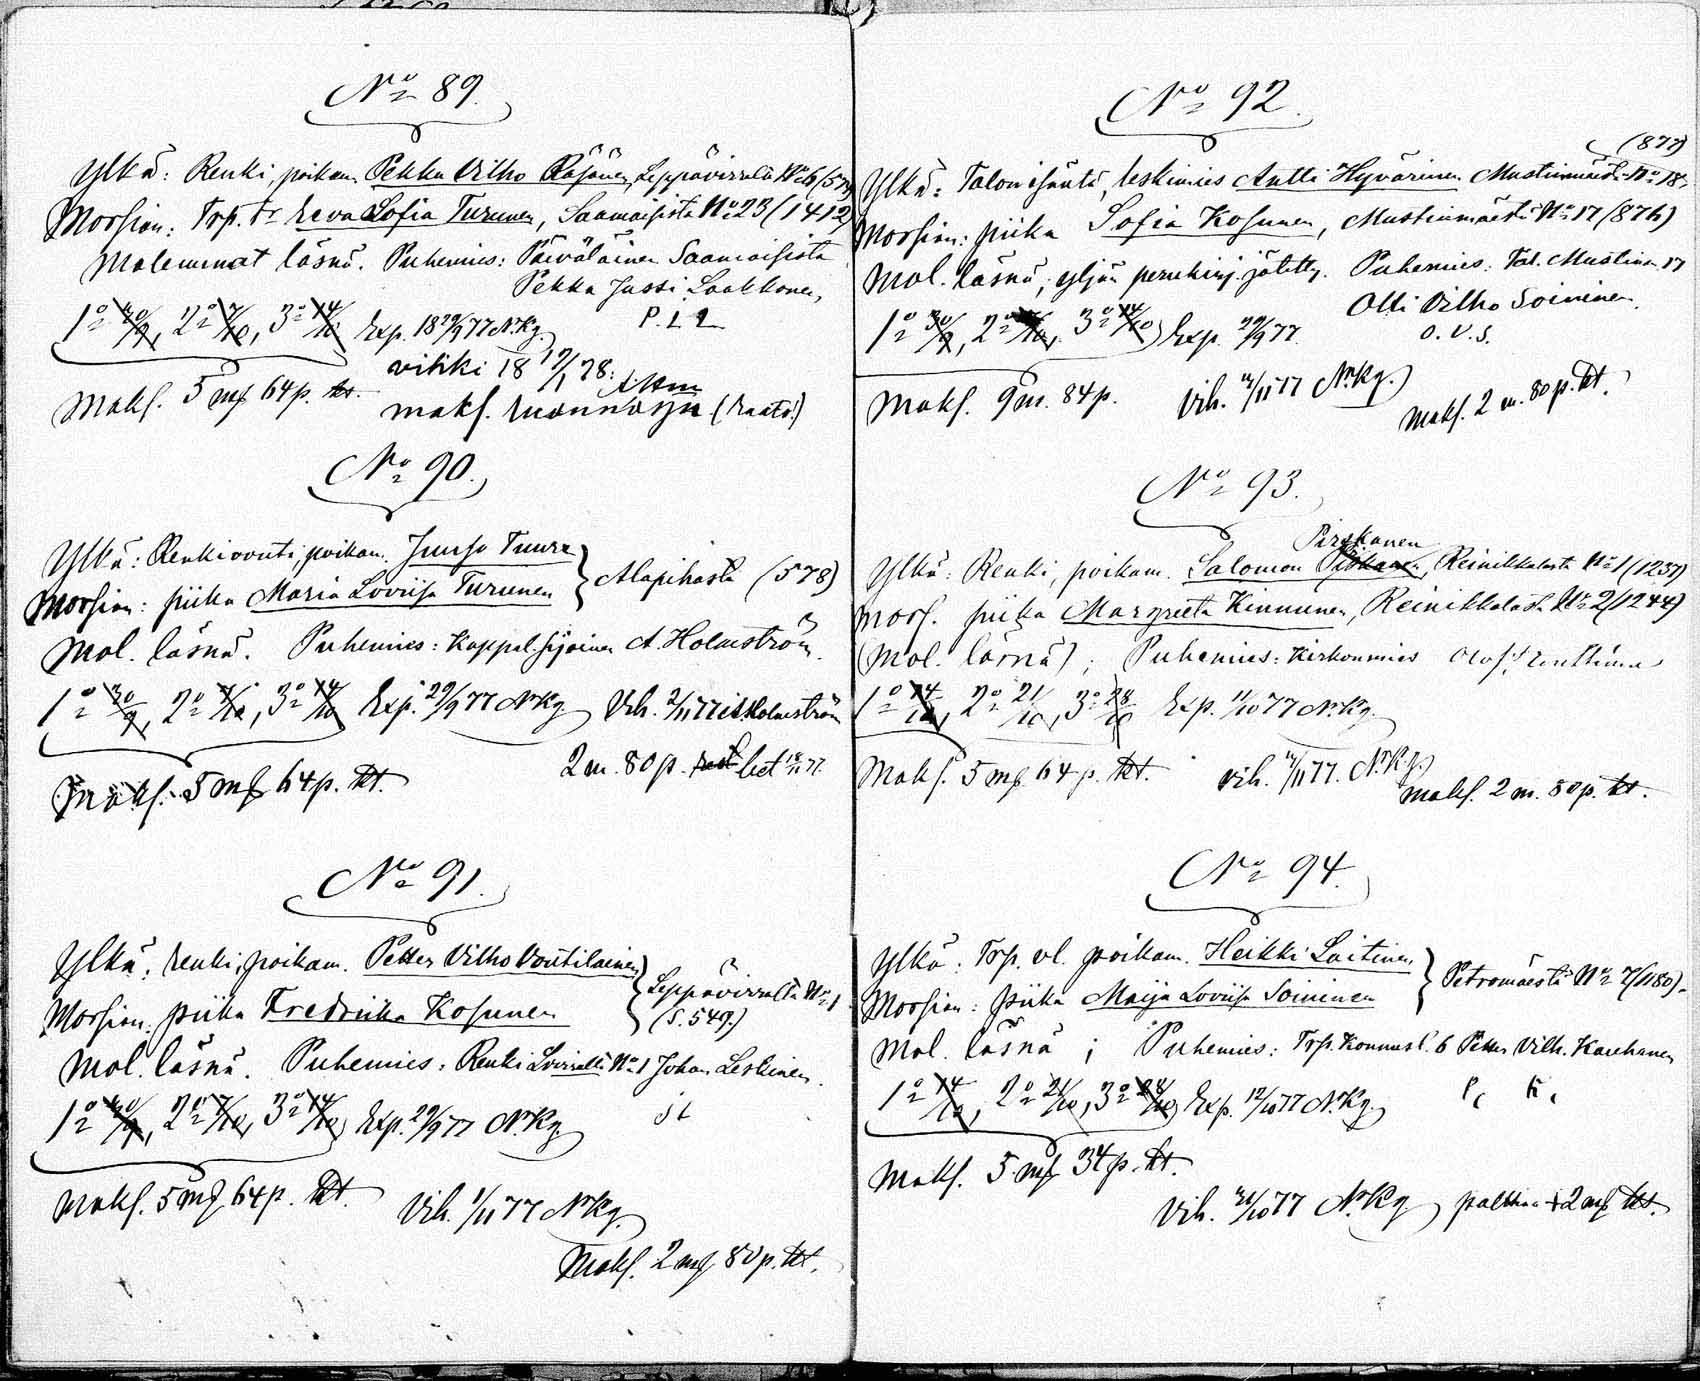 No 89.
Ylkä: Renki, poikam. Pekka Vilho Räsänen, Leppävirralta No 6 (579)
Morsian: Trp. tr Eeva Sofia Turunen, Saamaisista No 23 (1412)
Molemmat läsnä. Puhemies: Päiväläinen Saamaisista
Pekka Jussi Laakkonen,
1o 30/9, 2o 7/10, 3o 14/10 Exp. 18 29/9 77 N.Kg.
P. L L
vihki 18 19/1 78:
Maks. 5 mk 64 p. kt.
maks.
No 90.
Ylkä: Renkivouti, poikam. Juuso Tuure
Morsian: piika Maria Loviisa Turunen
Alapihasta (578)
Mol. läsnä. Puhemies: Kappal. A. Holmström.
1o 30/9, 2o 7/10, 3o 14/10 Exp. 29/9 77 N.Kg Vih. 2/11 77 Holmström
Maks. 5 mk 64 p. kt.
2 m. 80 p. bet 18/11 77.
No 91.
Ylkä: renki, poikam. Petter Vilho Voutilainen
Morsian: piika Fredriika Kosunen
Leppävirralta No 1
(S. 549.)
Mol. läsnä. Puhemies: Renki No 1 Johan Leskinen.
1o 30/9, 2o 7/10, 3o 14/10 Exp. 29/9 77 N.Kg.
Maks. 5 mk 64 p. kt.
Vih. 1/11 77 N.Kg.
Maks. 2 mk 80 p. kt.
No 92.
(877)
Ylkä: Talon isäntä, leskimies Antti Hyvärinen Mustinmäestä No 18.
Morsian: piika Sofia Kosunen, Mustinmäestä No 17 (876)
Mol. läsnä; yljän perukirj. jätetty. Puhemies: Tal. Mustinm. 17
Olli Vilho Soininen.
1o 30/9, 2o 7/10, 3o 14/10 Exp. 29/9 77.
O. V. S.
Maks. 9 m. 84 p.
Vih. 77 N.Kg.
Maks. 2 m. 80 p. kt.
No 93.
Pirskanen
Ylkä: Renki, poikam. Salomon Piskanen, Reinikkalasta No 1 (1237)
Mors. piika Margreeta Kinnunen, Reinikkalasta No 2 (1244)
(Mol. läsnä); Puhemies: Kirkonmies Olof
1o 14/10, 2o 21/10, 3o 28/10 Exp. 11/10 77 N.Kg.
Maks. 5 mk 64 p. kt.
vih. 77. N.Kg.
maks. 2 m. 80 p. kt.
No 94.
Ylkä: Trp. vl. poikam. Heikki Laitinen
Morsian: Piika Maija Loviisa Soininen
Petromäestä No 7 (1180).
Mol. läsnä; Puhemies: Trp. Konnusl. 6 Petter Vilh. Kauhanen
1o 14/10, 2o 21/10, 3o 28/10 Exp. 12/10 77 N.Kg.
P. K.
Maks. 5 mk 34 p. kt.
Vih. 31/10 77 N.Kg. 2 mk kt.